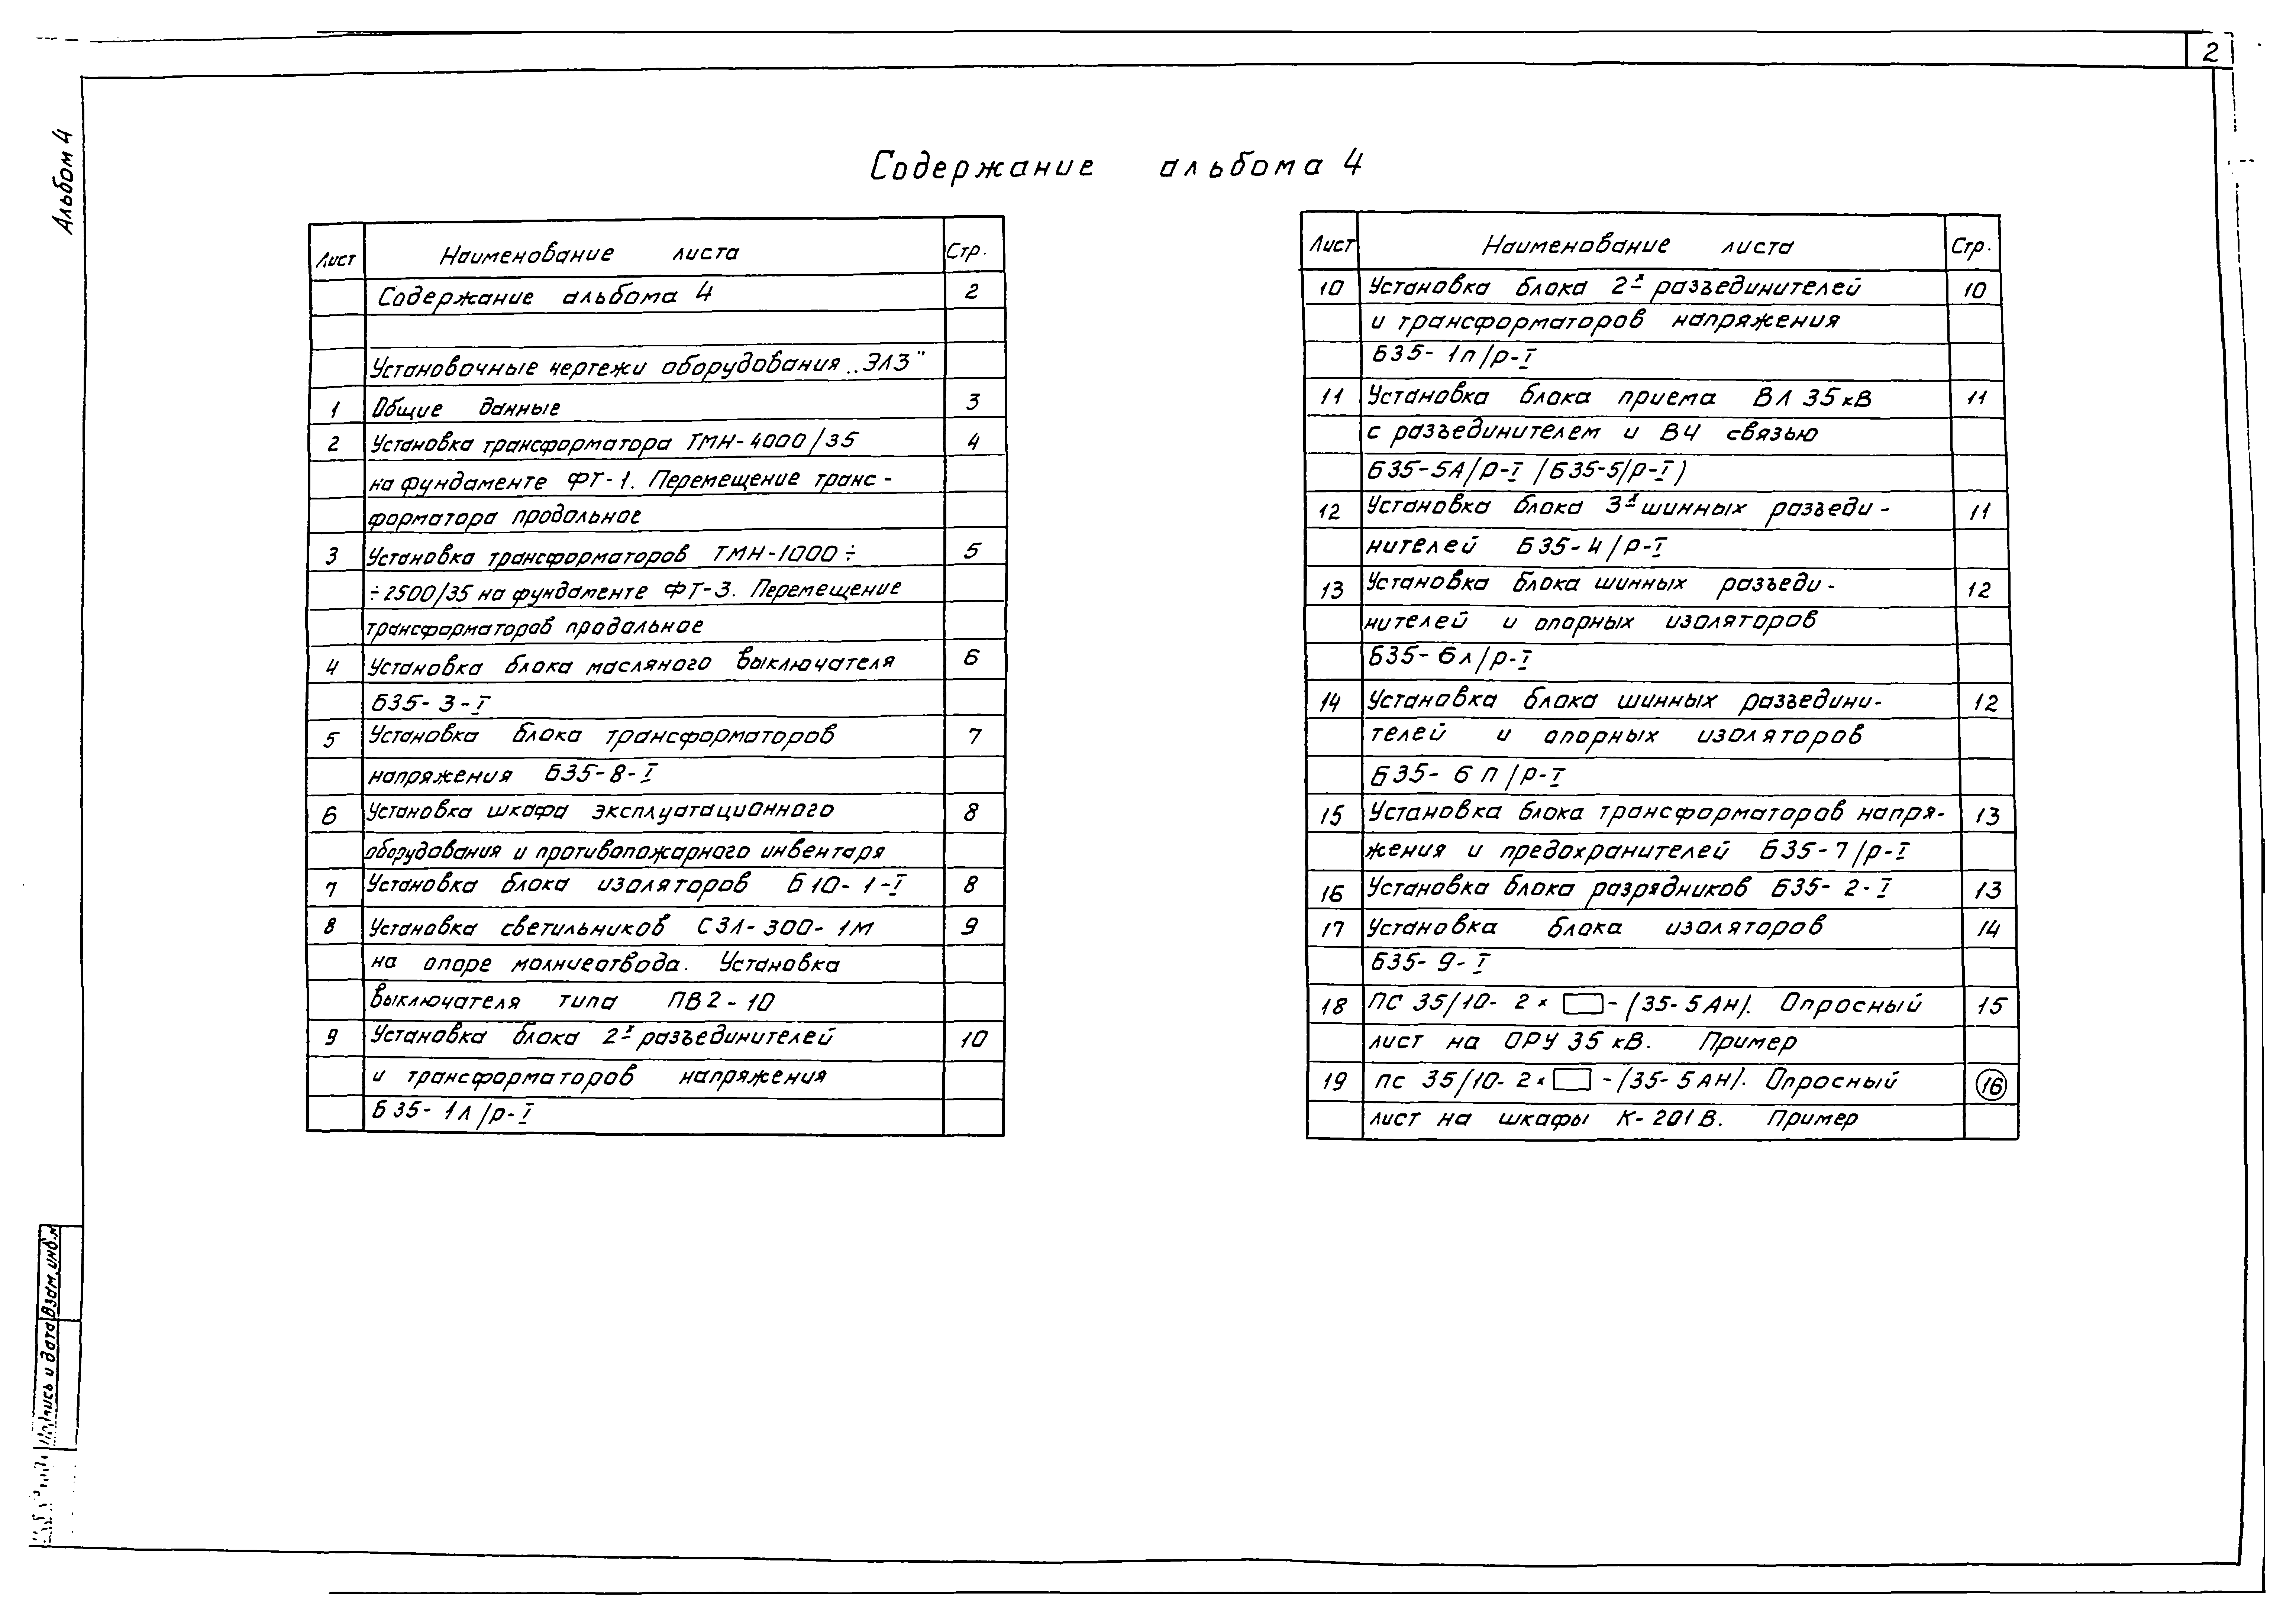 2
Альбом 4
Содержание альбома 4
Лист Наименование листа Стр.
Содержание альбома 4 2
Установочные чертежи оборудования „ЭЛЗ"
1 Общие данные 3
2 Установка трансформатора ТМН-4000/35 4
на фундаменте ФТ-1. Перемещение транс-
форматора продольное
3 Установка трансформаторов ТМН-1000÷ 5
÷2500/35 на фундаменте ФТ-3. Перемещение
трансформаторов продольное
4 Установка блока масляного выключателя 6
Б35-3-I
5 Установка блока трансформаторов 7
напряжения Б35-8-I
6 Установка шкафа эксплуатационного 8
оборудования и противопожарного инвентаря
7 Установка блока изоляторов Б10-1-I 8
8 Установка светильников СЗЛ-300-1М 9
на опоре молниеотвода. Установка
выключателя типа ПВ2-10
9 Установка блока 2х разъединителей 10
и трансформаторов напряжения
Б35-1л/р-I
Лист Наименование листа Стр.
10 Установка блока 2х разъединителей 10
и трансформаторов напряжения
Б35-1п/р-I
11 Установка блока приема ВЛ 35кВ 11
с разъединителем и ВЧ связью
Б35-5А/р-I (Б35-5/р-I)
12 Установка блока 3х шинных разъеди- 11
нителей Б35-4/р-I
13 Установка блока шинных разъеди- 12
нителей и опорных изоляторов
Б35-6л/р-I
14 Установка блока шинных разъедини- 12
телей и опорных изоляторов
Б35-6п/р-I
15 Установка блока трансформаторов напря- 13
жения и предохранителей Б35-7/р-I
16 Установка блока разрядников Б35-2-I 13
17 Установка блока изоляторов 14
Б35-9-I
18 ПС 35/10-2×▭-(35-5АН). Опросный 15
лист на ОРУ 35 кВ. Пример
19 ПС 35/10-2×▭-(35-5АН). Опросный 16
лист на шкафы К-201В. Пример
Взам.инв.№
Подпись и дата